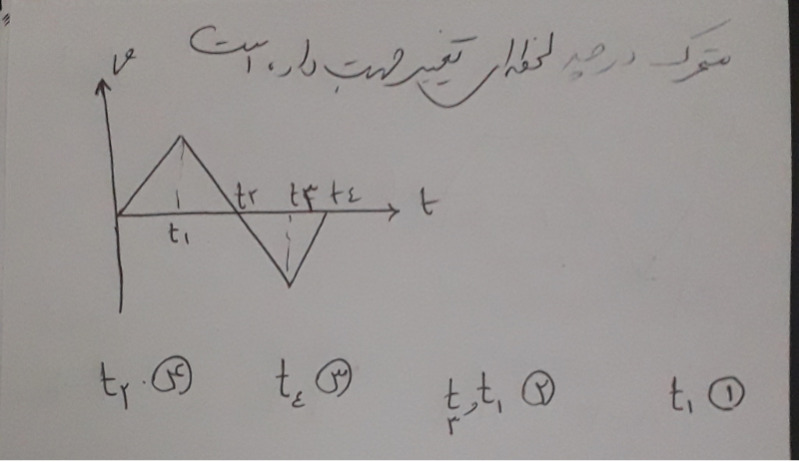 متحرک در چه لحظه‌ای تغییر جهت داده است
v
t۲ t۳ t٤ t
t۱
① t۱ ② t۱ , t۳ ③ t٤ ④ t۲